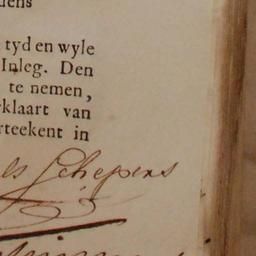 dens
tyd en wyle
Inleg. Den
te nemen,
rklaart van
rteekent in
ls Schepens